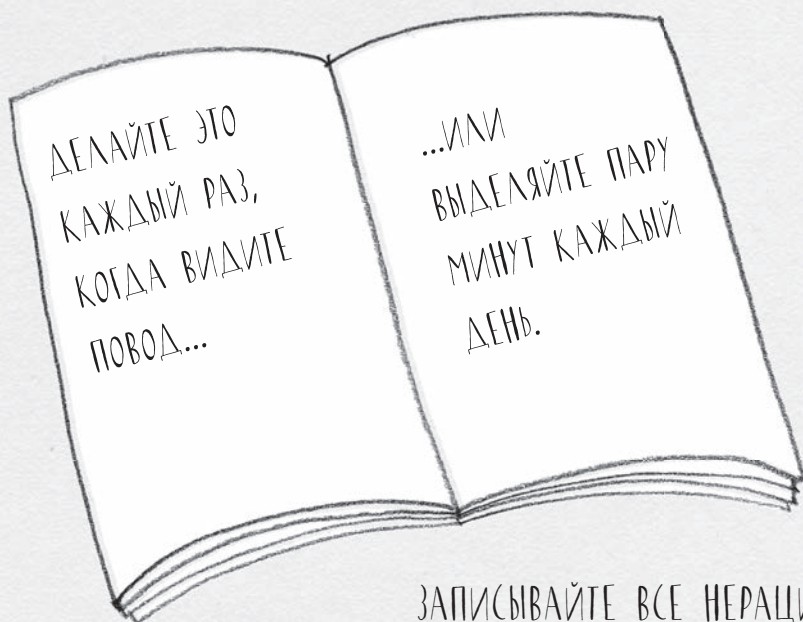 ДЕЛАЙТЕ ЭТО
КАЖДЫЙ РАЗ,
КОГДА ВИДИТЕ
ПОВОД...
...ИЛИ
ВЫДЕЛЯЙТЕ ПАРУ
МИНУТ КАЖДЫЙ
ДЕНЬ.
ЗАПИСЫВАЙТЕ ВСЕ